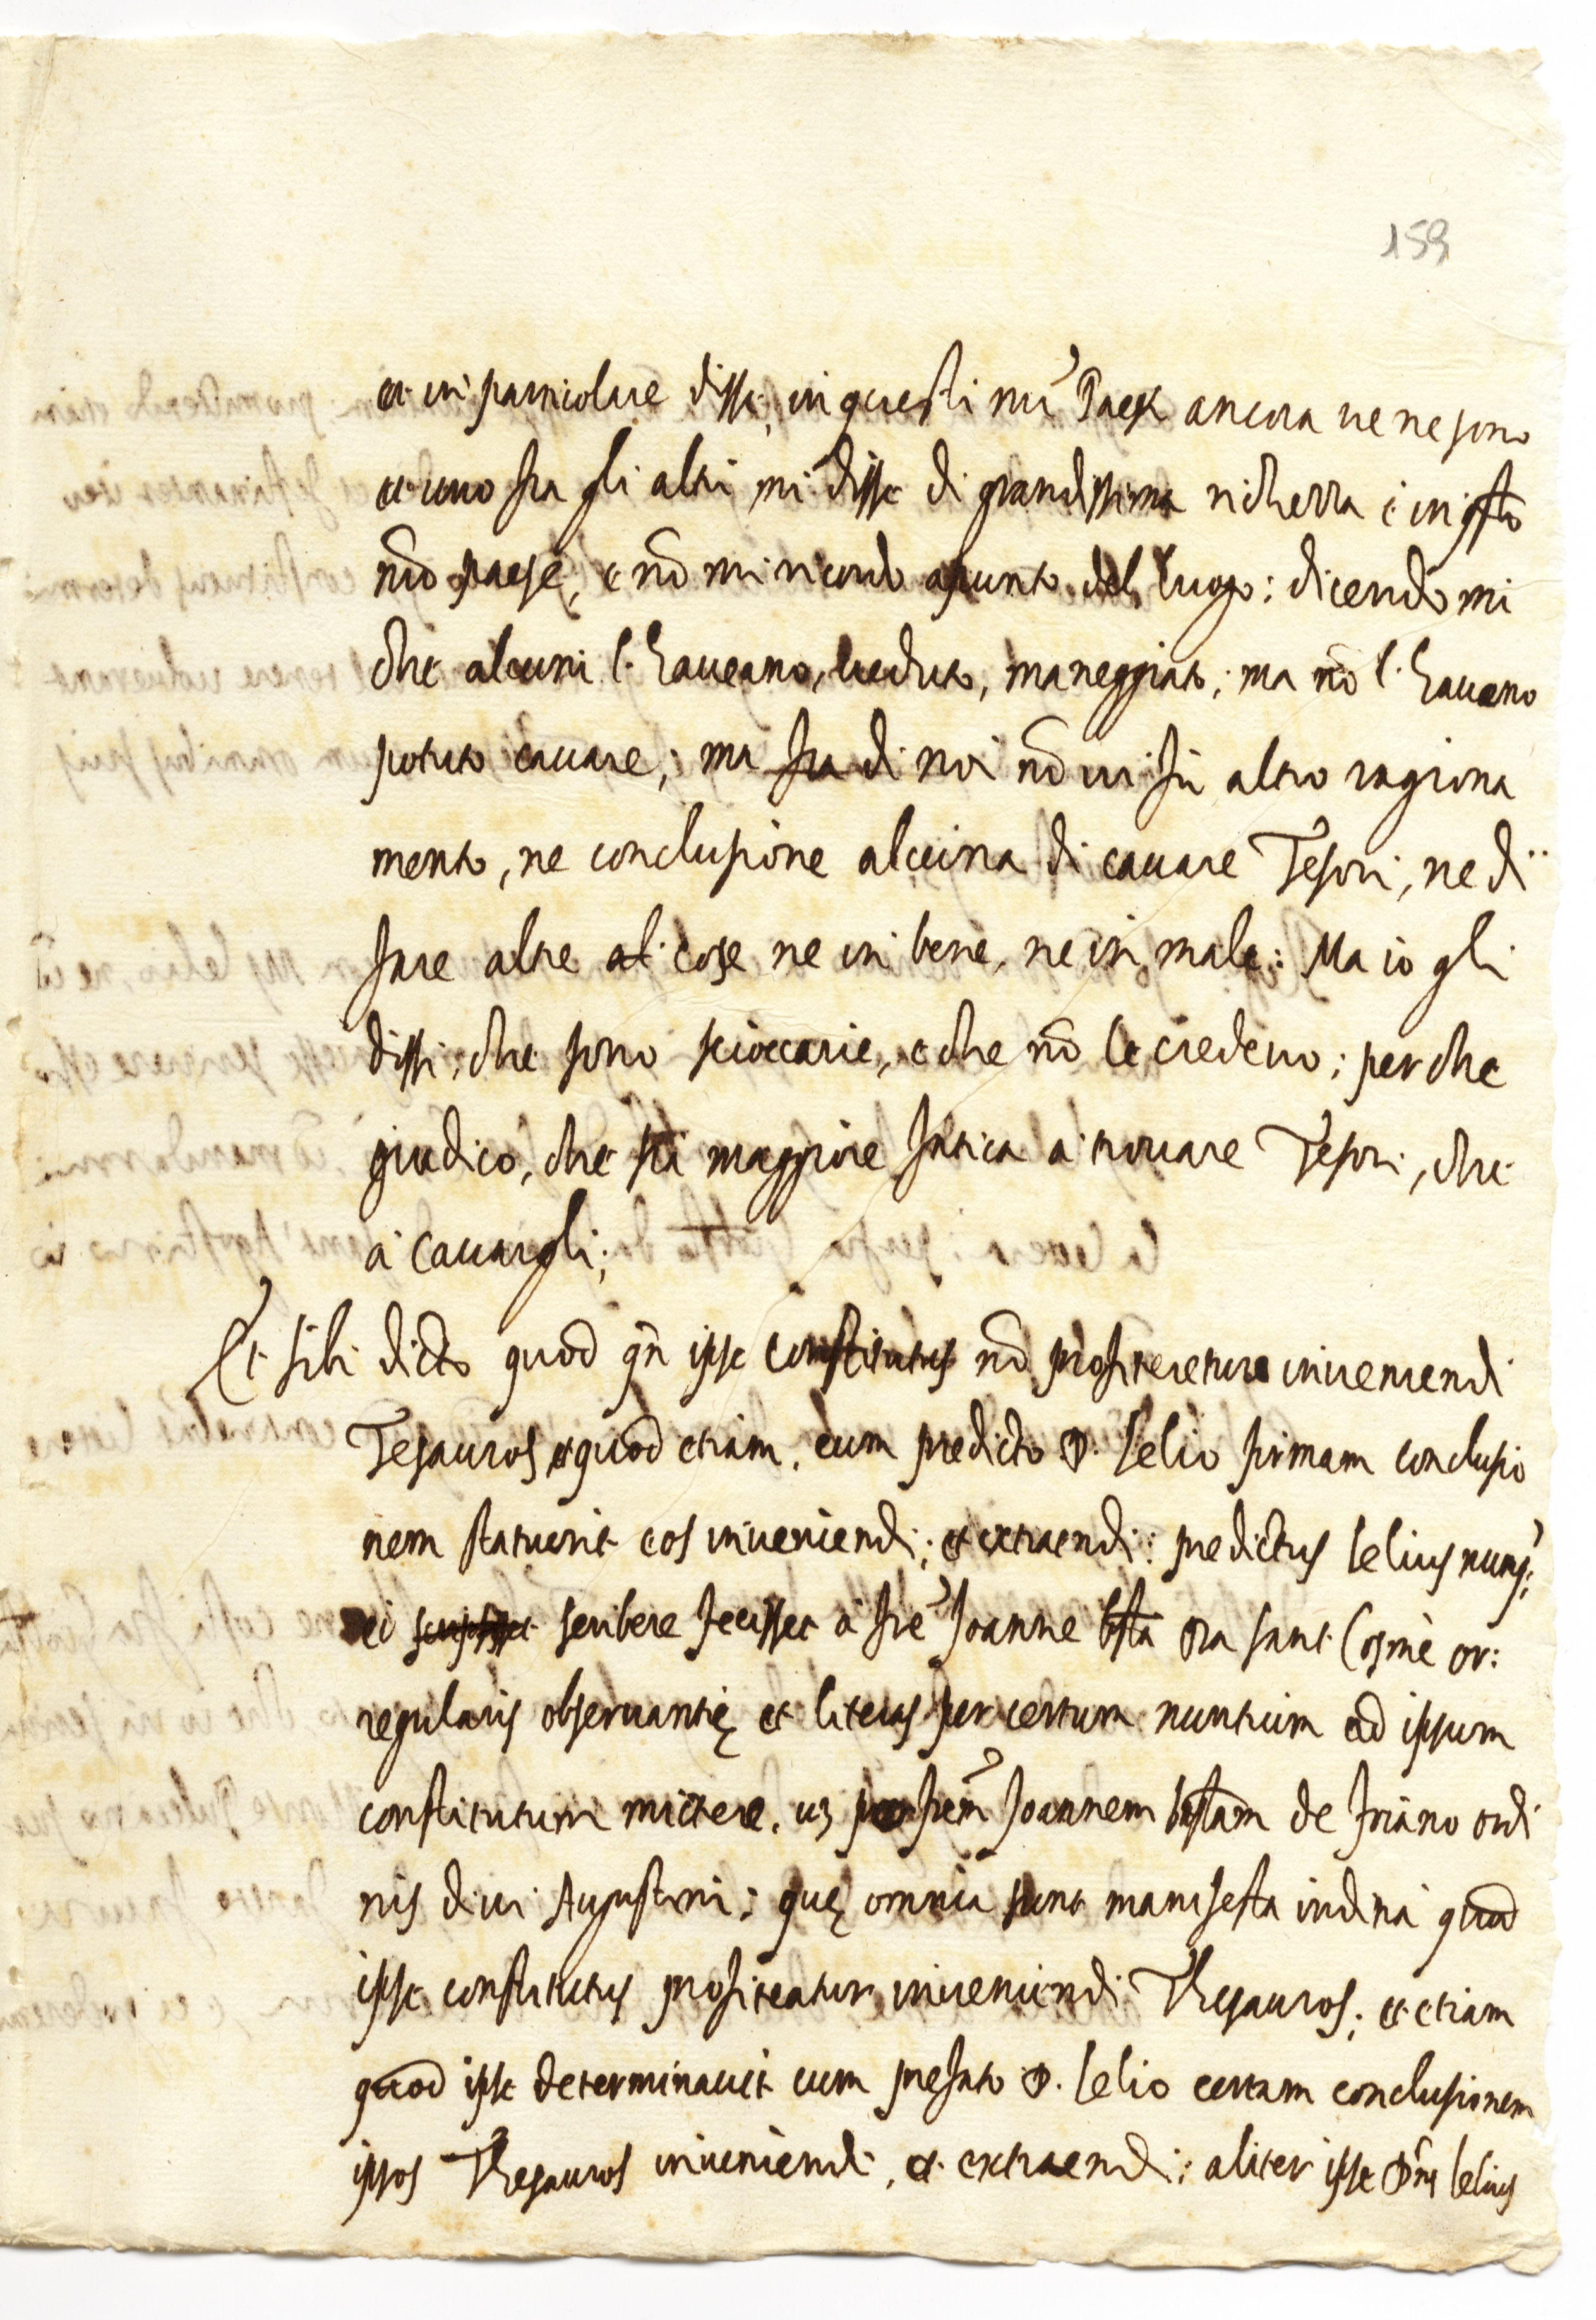 159
et in particolare disse, in questi nrĩ Paesi ancora ve ne sono
et uno fra gli altri mi disse di grandissima richezza è in q̃sto
nrõ paese, e nõ mi ricordo apunto del luogo: dicendomi
che alcuni l'haveano, veduto, maneggiato; ma nõ l'haveano
potuto cavare; ma fra di noi nõ vi fù altro ragiona
mento, ne conclusione alcuna di cavare Tesori, ne di
fare altre al cose ne in bene, ne in male: Ma io gli
dissi, che sono scioccarie, e che nõ le credevo; perche
giudico, che sia maggiore fatica a trovare Tesori, che
a cavargli;
Et sibi dicto quod qñ ipse constitutus nõ profiteretur inveniendi
Tesauros et quod etiam, cum predicto D. Lelio firmam conclusio
nem statuerit eos inveniendi; et extraendi: predictus Lelius nunq̃;
ei scribere fecisset a frẽ Joanne bsta sant Cosme or:
regularis observantię et literas per certum nuntium ad ipsum
constitutum mictere. uz fręm Joannem bstam de friano ordi
nis divi Augustini: quę omnia sunt manifesta indicia quod
ipse constitutus profiteatur inveniendi Thesauros; et etiam
quod ipse determinavit cum prefato D. Lelio certam conclusionem
ipsos Thesauros inveniendi, et extraendi: aliter ipse Dñs Lelius